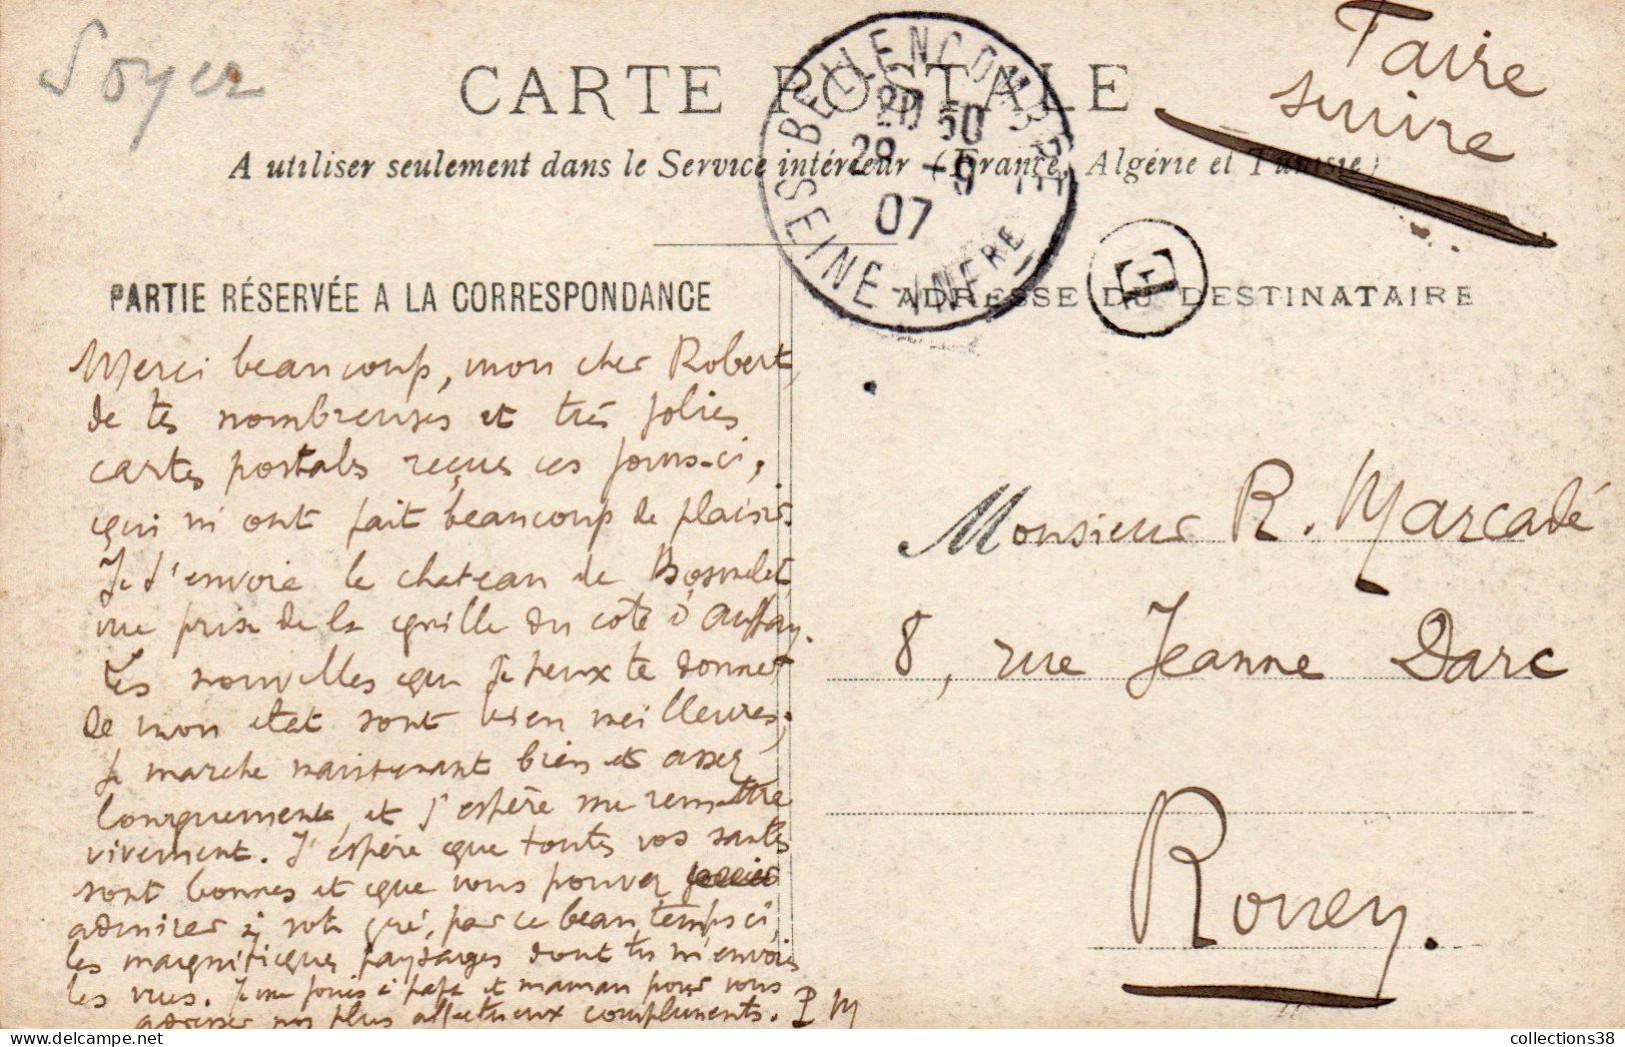 Soyer
CARTE POSTALE
Faire
suivre
A utiliser seulement dans le Service intérieur (France, Algérie et Tunisie)
BELLENCOMBRE
20 50
28 -9
07
SEINE-INFRE
T
PARTIE RÉSERVÉE A LA CORRESPONDANCE
ADRESSE DU DESTINATAIRE
Merci beaucoup, mon cher Robert,
de tes nombreuses et très jolies
cartes postales reçues ces jours-ci,
qui m'ont fait beaucoup de plaisir.
Je t'envoie le chateau de Bosmelet
vue prise de la grille du côté d'Auffay.
Les nouvelles que je peux te donner
de mon état sont bien meilleures,
je marche maintenant bien et assez
longuement, et j'espère me remettre
vivement. J'espère que toutes vos santés
sont bonnes et que vous pouvez
admirer à votre gré, par ce beau temps ci,
les magnifiques paysages dont tu m'envois
les vues. Je me joins à papa et maman pour vous
adresser nos plus affectueux compliments. P M
Monsieur R. Marcadé
8, rue Jeanne Darc
Rouen.
collections38